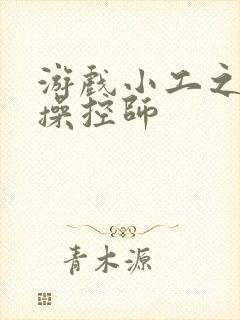 游戏小工之
操控师
青木源